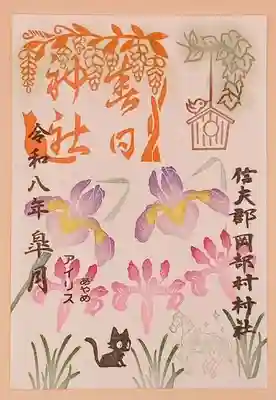 信夫郡岡部村村社
春日
神社
令和八年 皐月
あやめ
アイリス